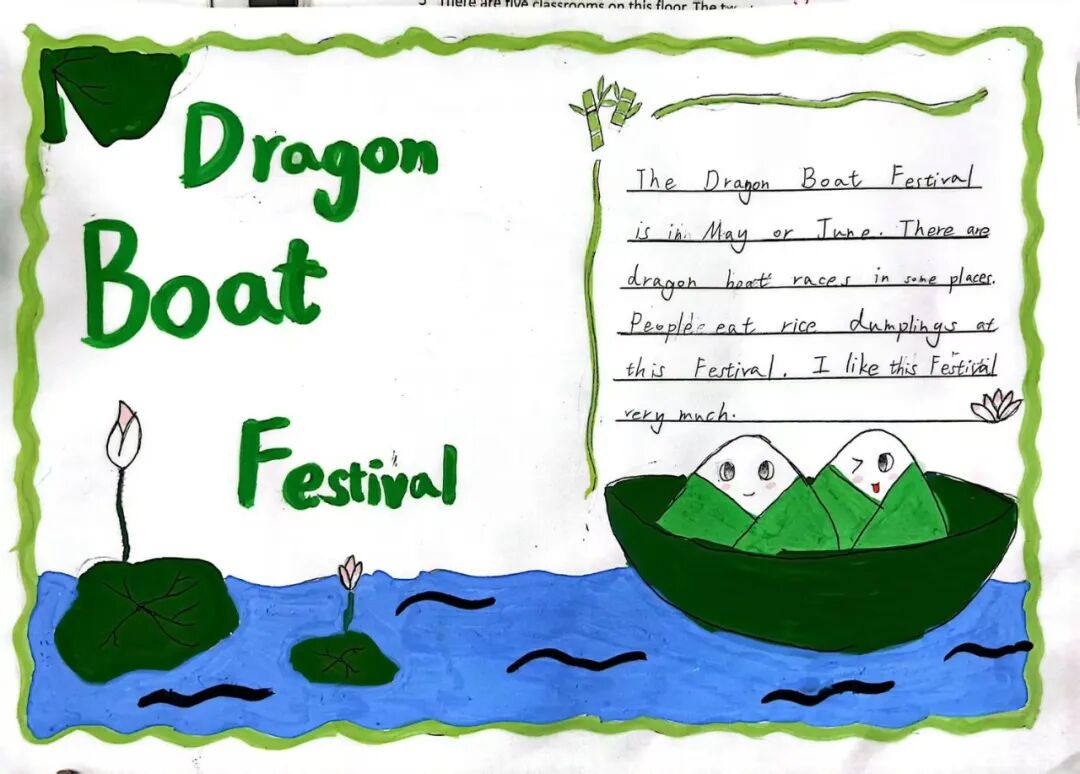 3 There are five classrooms on this floor. The tw
Dragon
Boat
Festival
The Dragon Boat Festival
is in May or June. There are
dragon boat races in some places.
People eat rice dumplings at
this Festival. I like this Festival
very much.